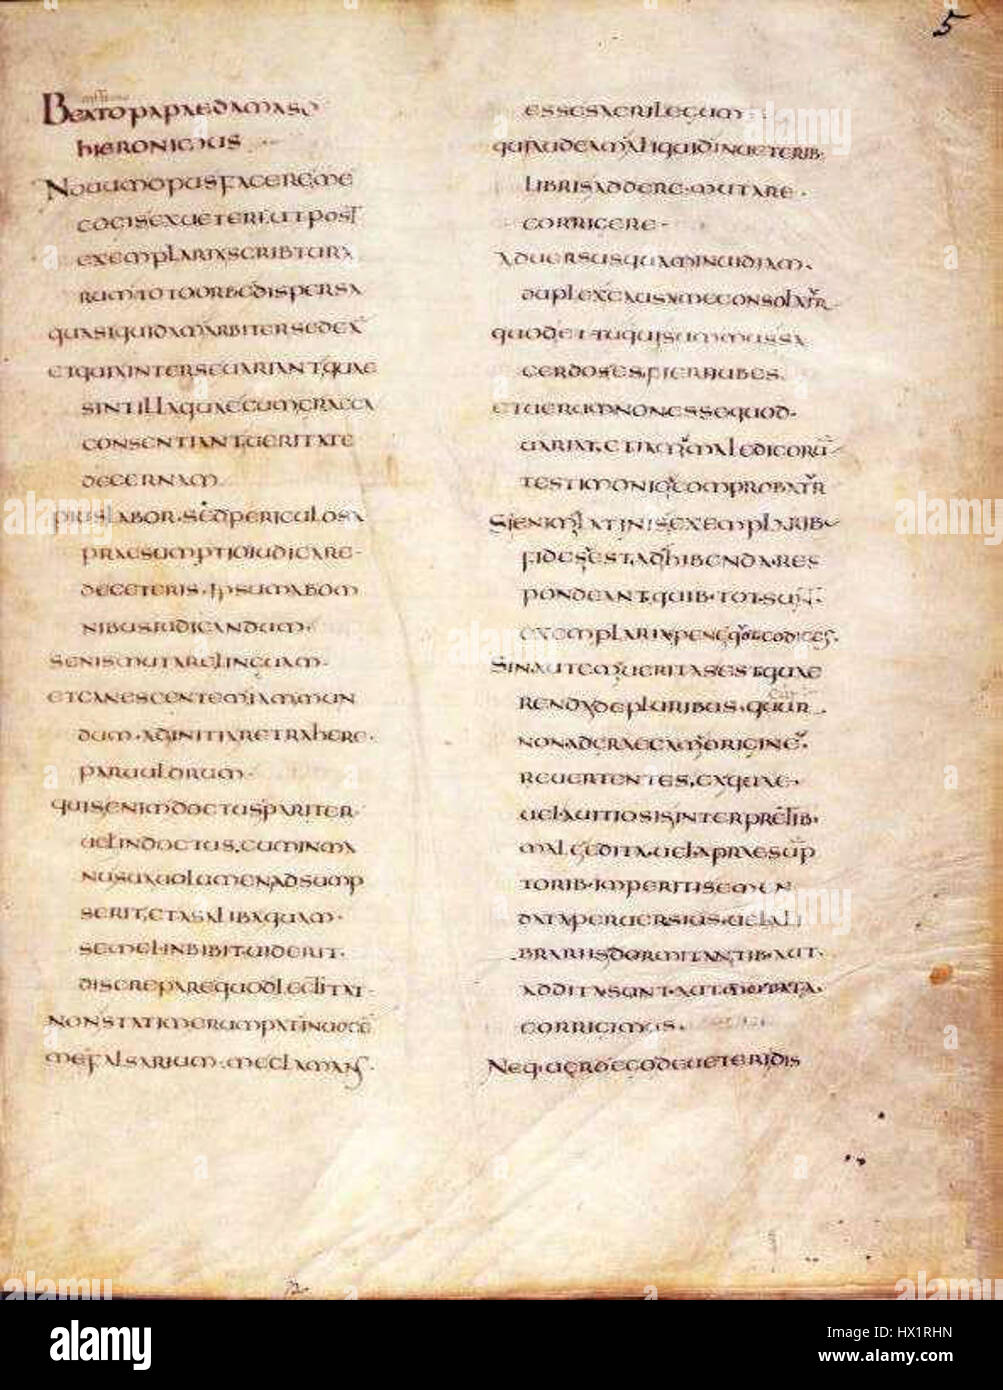 5
BEATO PAPAE DAMASO
HIERONIMUS
NOUUM OPUS FACERE ME
COGIS EX UETERE UT POST
EXEMPLARIA SCRIBTURA
RUM TOTO ORBE DISPERSA
QUASI QUIDAM ARBITER SEDEA
ET QUIA INTER SE UARIANT QUAE
SINT ILLA QUAE CUM GRAECA
CONSENTIANT UERITATE
DECERNAM
PIUS LABOR · SED PERICULOSA
PRAESUMPTIO IUDICARE
DE CETERIS · IPSUM AB OM
NIBUS IUDICANDUM ·
SENIS MUTARE LINGUAM ·
ET CANESCENTEM IAM MUN
DUM · AD INITIA RETRAHERE ·
PARUULORUM ·
QUIS ENIM DOCTUS PARITER
UEL INDOCTUS · CUM IN MA
NUS UOLUMEN ADSUMP
SERIT · ET A SALIBA QUAM ·
SEMEL INBIBIT UIDERIT ·
DISCREPARE QUOD LECTITAT ·
NON STATIM ERUMPAT IN UOCE
ME FALSARIUM · ME CLAMANS ·
ESSE SACRILEGUM
QUI AUDEAM ALIQUID IN UETERIB·
LIBRIS ADDERE · MUTARE ·
CORRIGERE ·
ADUERSUS QUAM INUIDIAM ·
DUPLEX CAUSA ME CONSOLATR
QUOD ET TU QUI SUMMUS SA
CERDOS ES FIERI IUBES ·
ET UERUM NON ESSE QUOD ·
UARIAT · ETIAM MALEDICORU
TESTIMONIO COMPROBATR
SI ENIM LATINIS EXEMPLARIB·
FIDES EST ADHIBENDA · RES
PONDEANT QUIB · TOT SUNT
EXEMPLARIA PENE QUOT CODICES ·
SIN AUTEM UERITAS EST QUAE
RENDA DE PLURIBUS · QUUR
NON AD GRAECAM ORIGINE
REUERTENTES · EX QUAE ·
UEL A UITIOSIS INTERPRETIB·
MALE EDITA · UEL A PRAESUMP
TORIB · IMPERITIS EMEN
DATA PERUERSIUS · UEL A LI
BRARIIS DORMITANTIB · AUT ·
ADDITA SUNT · AUT MUTATA ·
CORRIGIMUS ·
NEQ · UERO EGO DE UETERI DIS
alamy
HX1RHN
www.alamy.com